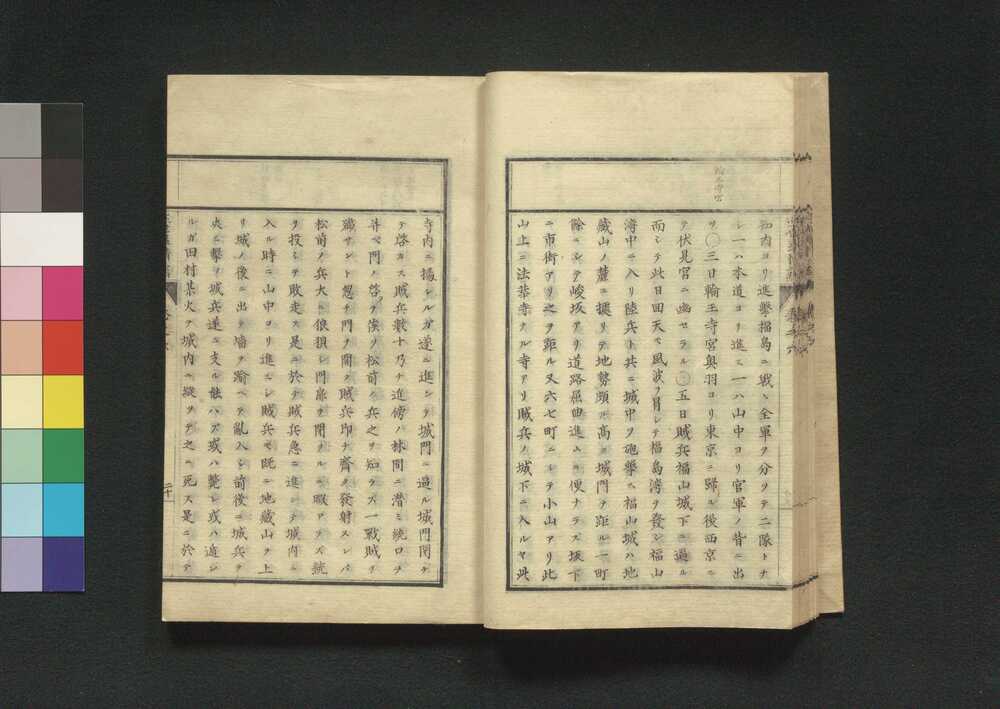 輪王寺宮
知内ヨリ進撃福島ニ戦ヽ全軍ヲ分ツテ二隊トナ
シ一ハ本道ヨリ進ミ一ハ山中ヨリ官軍ノ背ニ出
ツ〇三日輪王寺宮奥羽ヨリ東京ニ歸ル後西京ニ
テ伏見宮ニ幽セラル〇五日賊兵福山城下ニ過ル
而シテ此日回天モ風波ヲ冒シテ福島湾ヲ發シ福山
湾中ニ入リ陸兵ト共ニ城中ヲ砲撃ス福山城ハ地
蔵山ノ麓ニ據リテ地勢頗ル高ク城門ヲ距ル一町
餘ニシテ峻坂アリ道路屈曲進ムニ便ナラス坂下
ニ市街アリ之ヲ距ル又六七町ニシテ小山アリ此
山上ニ法華寺ナル寺アリ賊兵ノ城下ニ入ルヤ此
寺内ニ據シルガ遂ニ進シテ城門ニ過ル城門閉テ
テ啓カス賊兵數十乃チ進傍ノ林間ニ潜ミ銃口ヲ
并ベ門ノ啓クヲ僕ツ松前ノ兵之ヲ知ラズ一戦賊ヲ
殲サント愚テ門ヲ開ク賊兵即チ齊ク發射スレバ
松前ノ兵大ニ狼狽シ門扉ヲ閉ツルニ暇アラズ銃
ヲ投シテ敗走ス是ニ於テ賊兵急ニ進シテ城内ニ
入ル時ニ山中ヨリ進ミシ賊兵モ既ニ地蔵山ヲ上
リ城ノ後ニ出テ墻ヲ踰ヘテ亂入シ前後ニ城兵ヲ
夾ミ撃ツ城兵遂ニ支ル能ハズ或ハ斃レ或ハ逃シ
ルガ田村某火ヲ城内ニ縱ツテ之ニ死ス是ニ於テ
二十